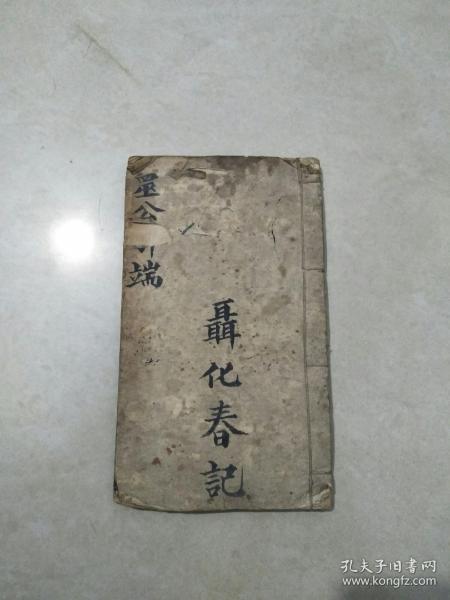 聶化春記
端
孔夫子旧书网
www.kongfz.com